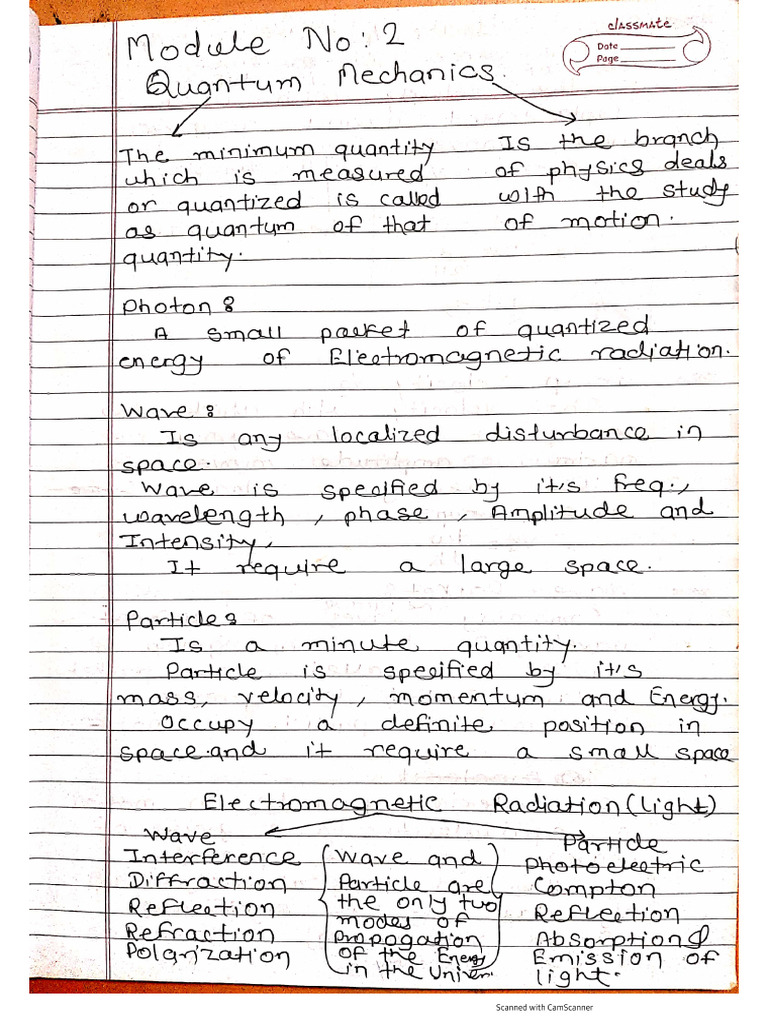 classmate
Date
Page
Module No: 2
Quantum Mechanics.
The minimum quantity
which is measured
or quantized is called
as quantum of that
quantity.
Is the branch
of physics deals
with the study
of motion.
Photon :
A small packet of quantized
energy of Electromagnetic radiation.
Wave :
Is any localized disturbance in
space.
Wave is specified by it's freq.,
wavelength, phase, Amplitude and
Intensity,
It require a large space.
Particle :
Is a minute quantity.
Particle is specified by it's
mass, velocity, momentum and Energy.
Occupy a definite position in
space.and it require a small space
Electromagnetic Radiation(light)
Wave
Interference
Diffraction
Reflection
Refraction
Polarization
Wave and
Particle are
the only two
modes of
Propogation
of the Energy
in the Univer.
Particle
Photoelectric
Compton
Reflection
Absorption &
Emission of
light.
Scanned with CamScanner